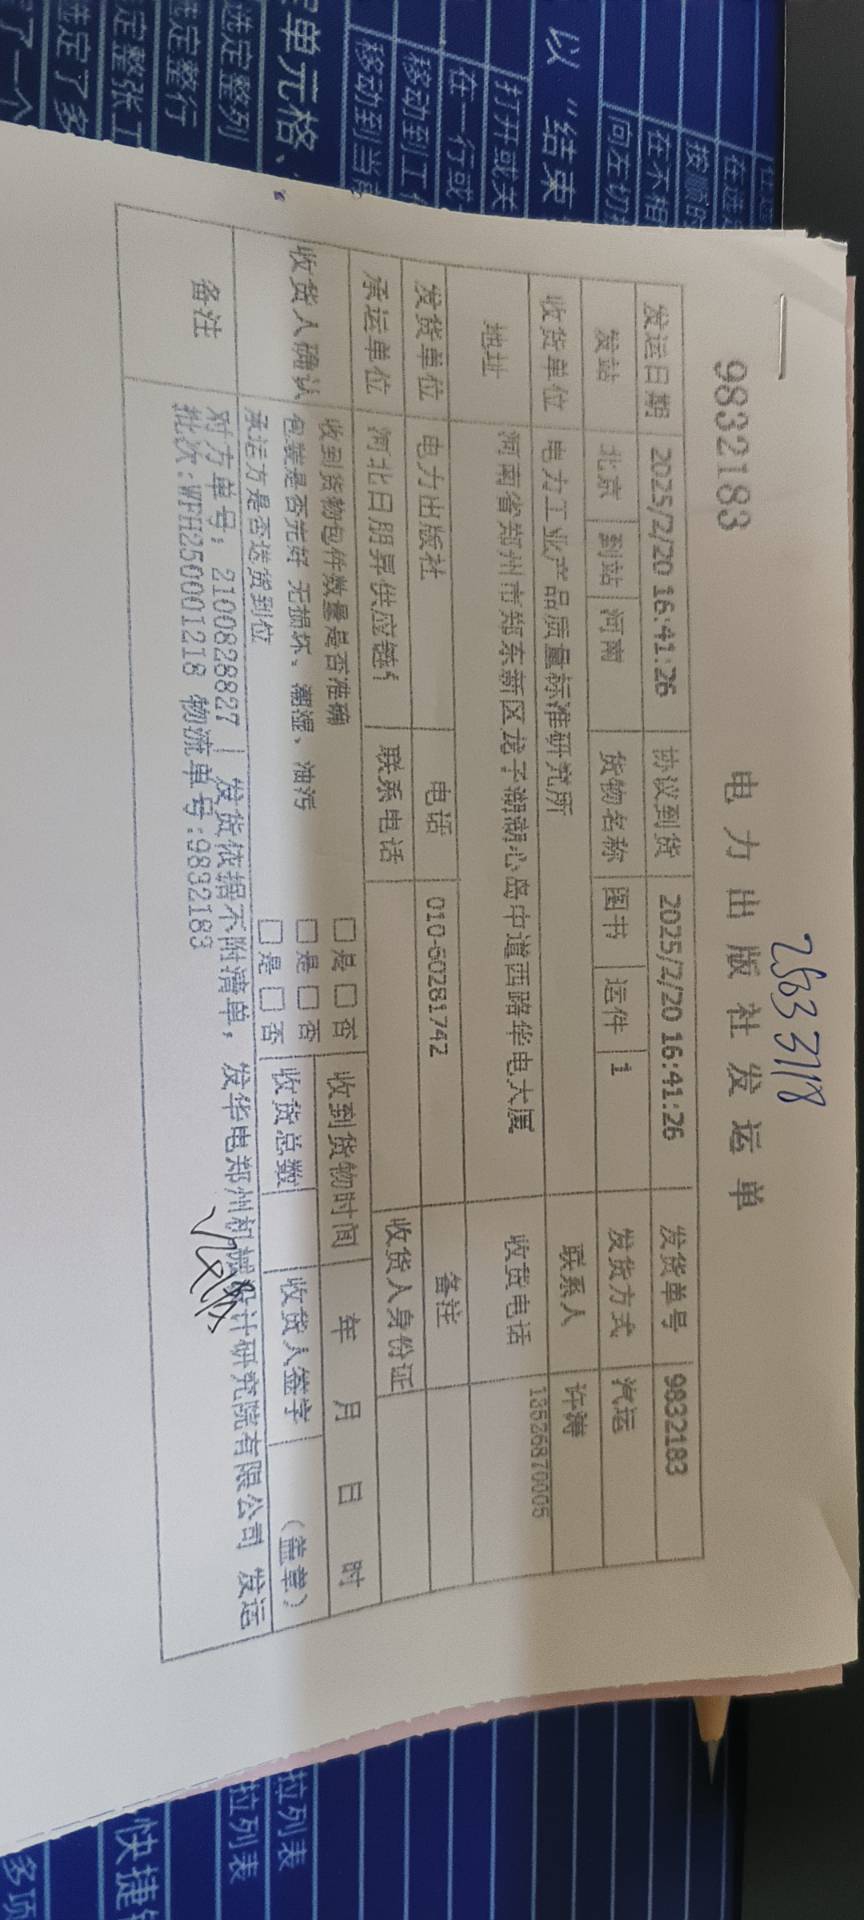 25633718
9832183
电力出版社发运单
发运日期 2025/2/20 16:41:26 协议到货 2025/2/20 16:41:26 发货单号 9832183
发站 北京 到站 河南 货物名称 图书 运件 1 发货方式 汽运
收货单位 电力工业产品质量标准研究所 联系人 许涛
地址 河南省郑州市郑东新区龙子湖湖心岛中道西路华电大厦 收货电话 13526870005
发货单位 电力出版社 电话 010-60281742 备注
承运单位 河北日朋昇供应链 联系电话 收货人身份证
收货人确认 收到货物包件数量是否准确 □是□否 收到货物时间 年 月 日 时
包装是否完好 无损坏、潮湿、油污 □是□否 收货总数 收货人签字 (盖章)
承运方是否送货到位 □是□否
备注 对方单号:2100828827 | 发货依据不附清单, 发华电郑州机械设计研究院有限公司 发运
批次:WFH250001218 物流单号:9832183
在选定
按顺时
在不相
向左切换
以“结束
打开或关
在一行或
移动到工作
移动到当前
单元格、
选定整列
选定整行
定整张工
选定了多
了一个
拉列表
拉列表
快捷
多项